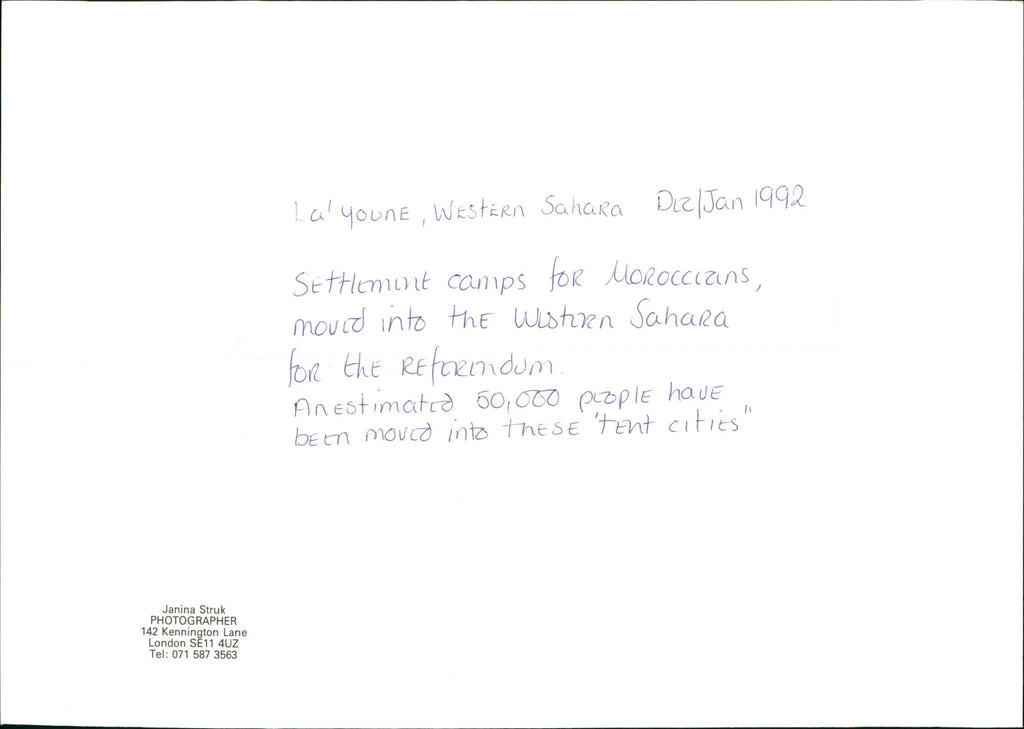 La'youne, Western Sahara Dec/Jan 1992
Settlement camps for Moroccians,
moved into the Western Sahara
for the Referendum.
An estimated 50,000 people have
been moved into these "tent cities"
Janina Struk
PHOTOGRAPHER
142 Kennington Lane
London SE11 4UZ
Tel: 071 587 3563